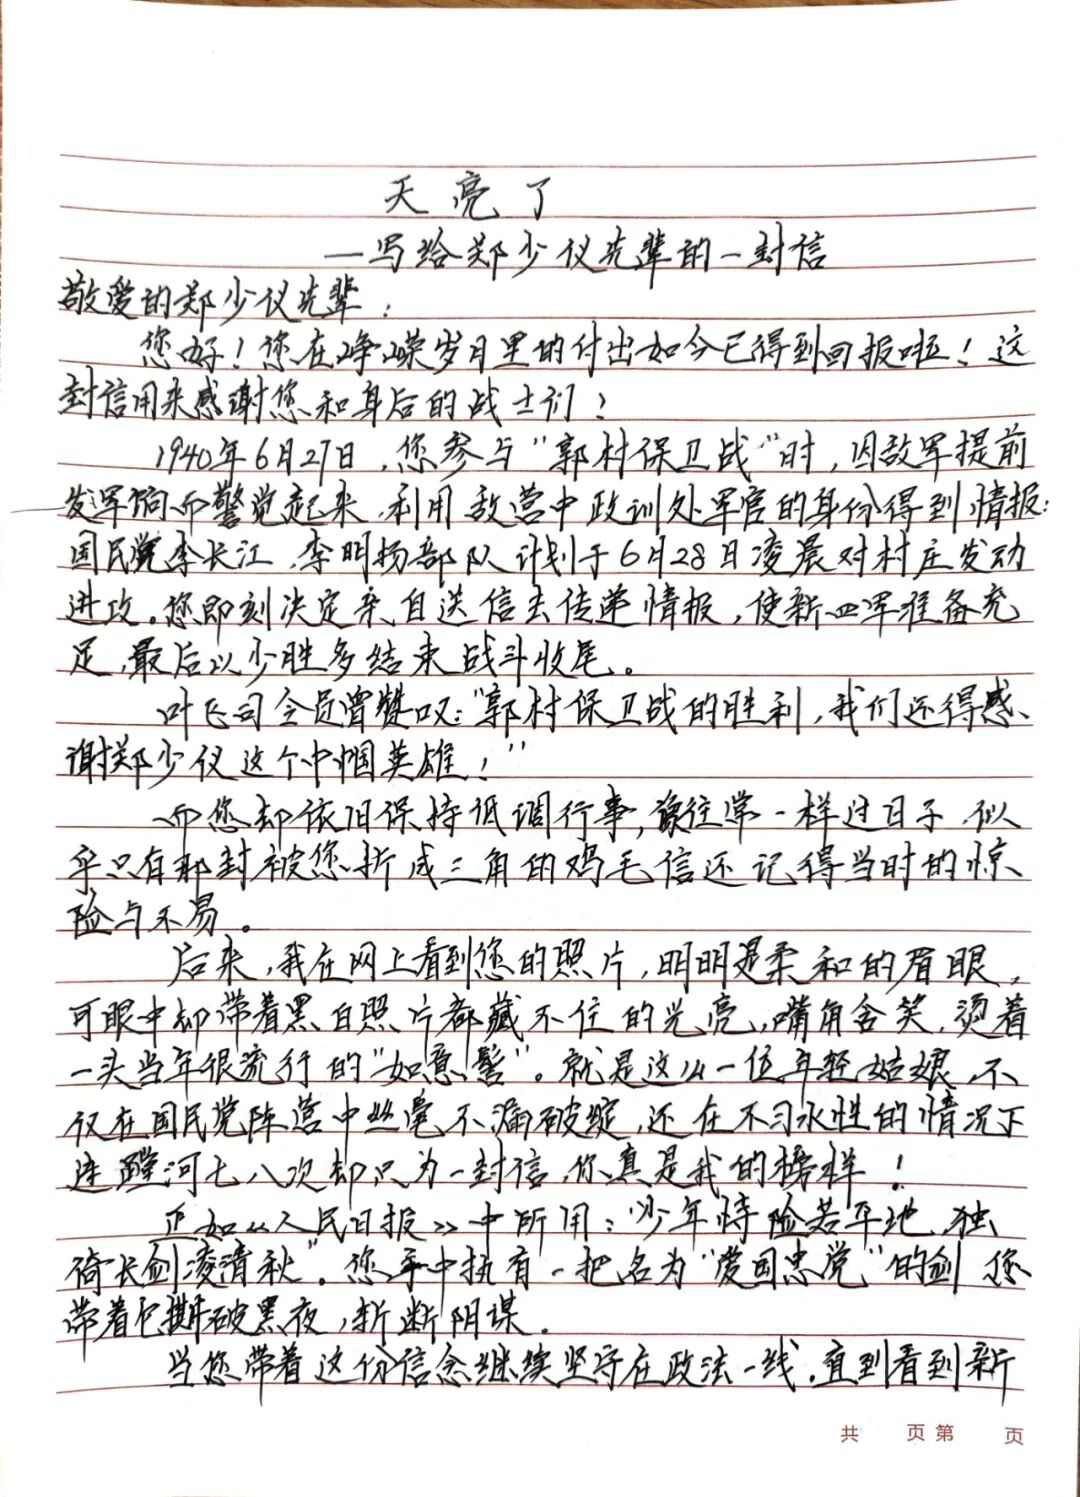 天亮了
—写给郑少仪先辈的一封信
敬爱的郑少仪先辈：
您好！您在峥嵘岁月里的付出如今已得到回报啦！这
封信用来感谢您和身后的战士们！
1940年6月27日，您参与“郭村保卫战”时，因敌军提前
发军饷而警觉起来，利用敌营中政训处军官的身份得到情报：
国民党李长江、李明扬部队计划于6月28日凌晨对村庄发动
进攻。您即刻决定亲自送信去传递情报，使新四军准备充
足，最后以少胜多结束战斗收尾。
叶飞司令员曾赞叹：“郭村保卫战的胜利，我们还得感
谢郑少仪这个巾帼英雄！”
而您却依旧保持低调行事，像往常一样过日子，似
乎只有那封被您折成三角的鸡毛信还记得当时的惊
险与不易。
后来，我在网上看到您的照片，明明是柔和的眉眼，
可眼中却带着黑白照片都藏不住的光亮，嘴角含笑，烫着
一头当年很流行的“如意髻”。就是这么一位年轻姑娘，不
仅在国民党阵营中丝毫不漏破绽，还在不习水性的情况下
连蹚河七八次却只为一封信，你真是我的榜样！
正如《人民日报》中所用：“少年恃险若平地，独
倚长剑凌清秋”。您手中执有一把名为“爱国忠党”的剑，您
带着它撕破黑夜，斩断阴谋。
当您带着这份信念继续坚守在政法一线，直到看到新
共 页 第 页